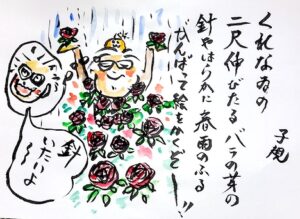 くれなゐの
二尺伸びたる
バラの芽の
針やはらかに春雨のふる
子規
がんばって絵をかくぞー!!
針
いたいよ
〜〜